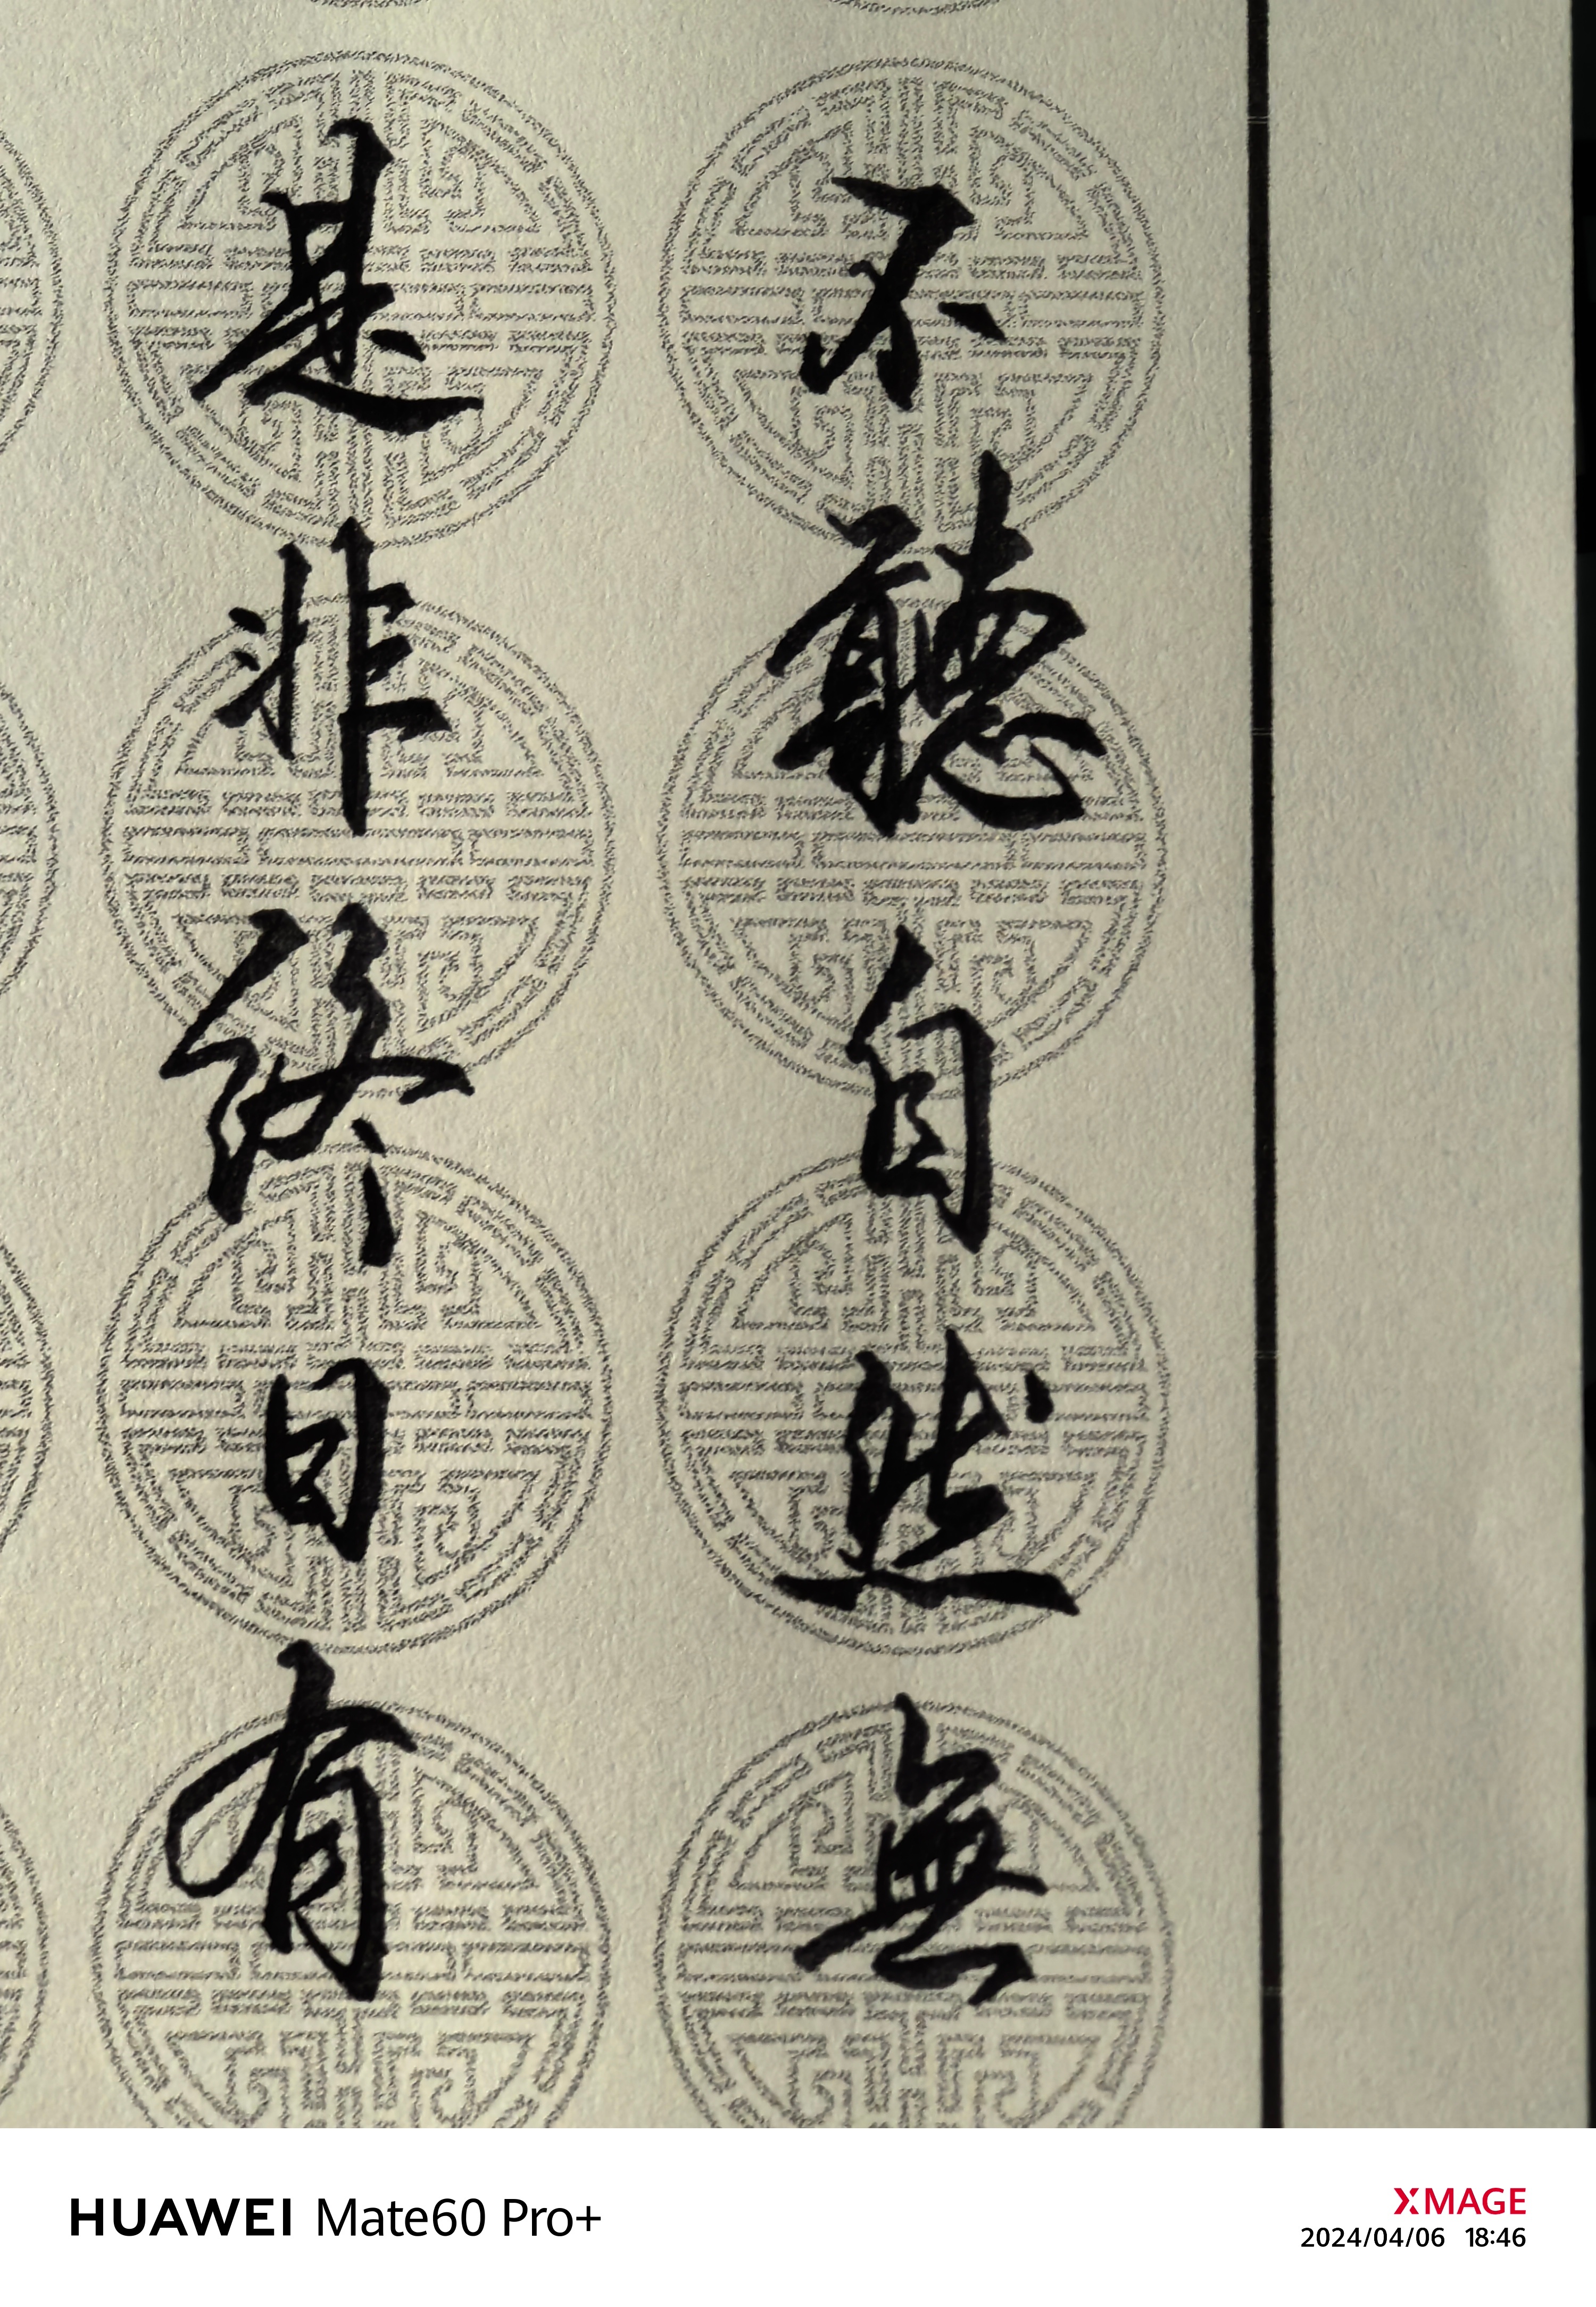 不聽自然無
是非終日有
HUAWEI Mate60 Pro+
XMAGE
2024/04/06 18:46